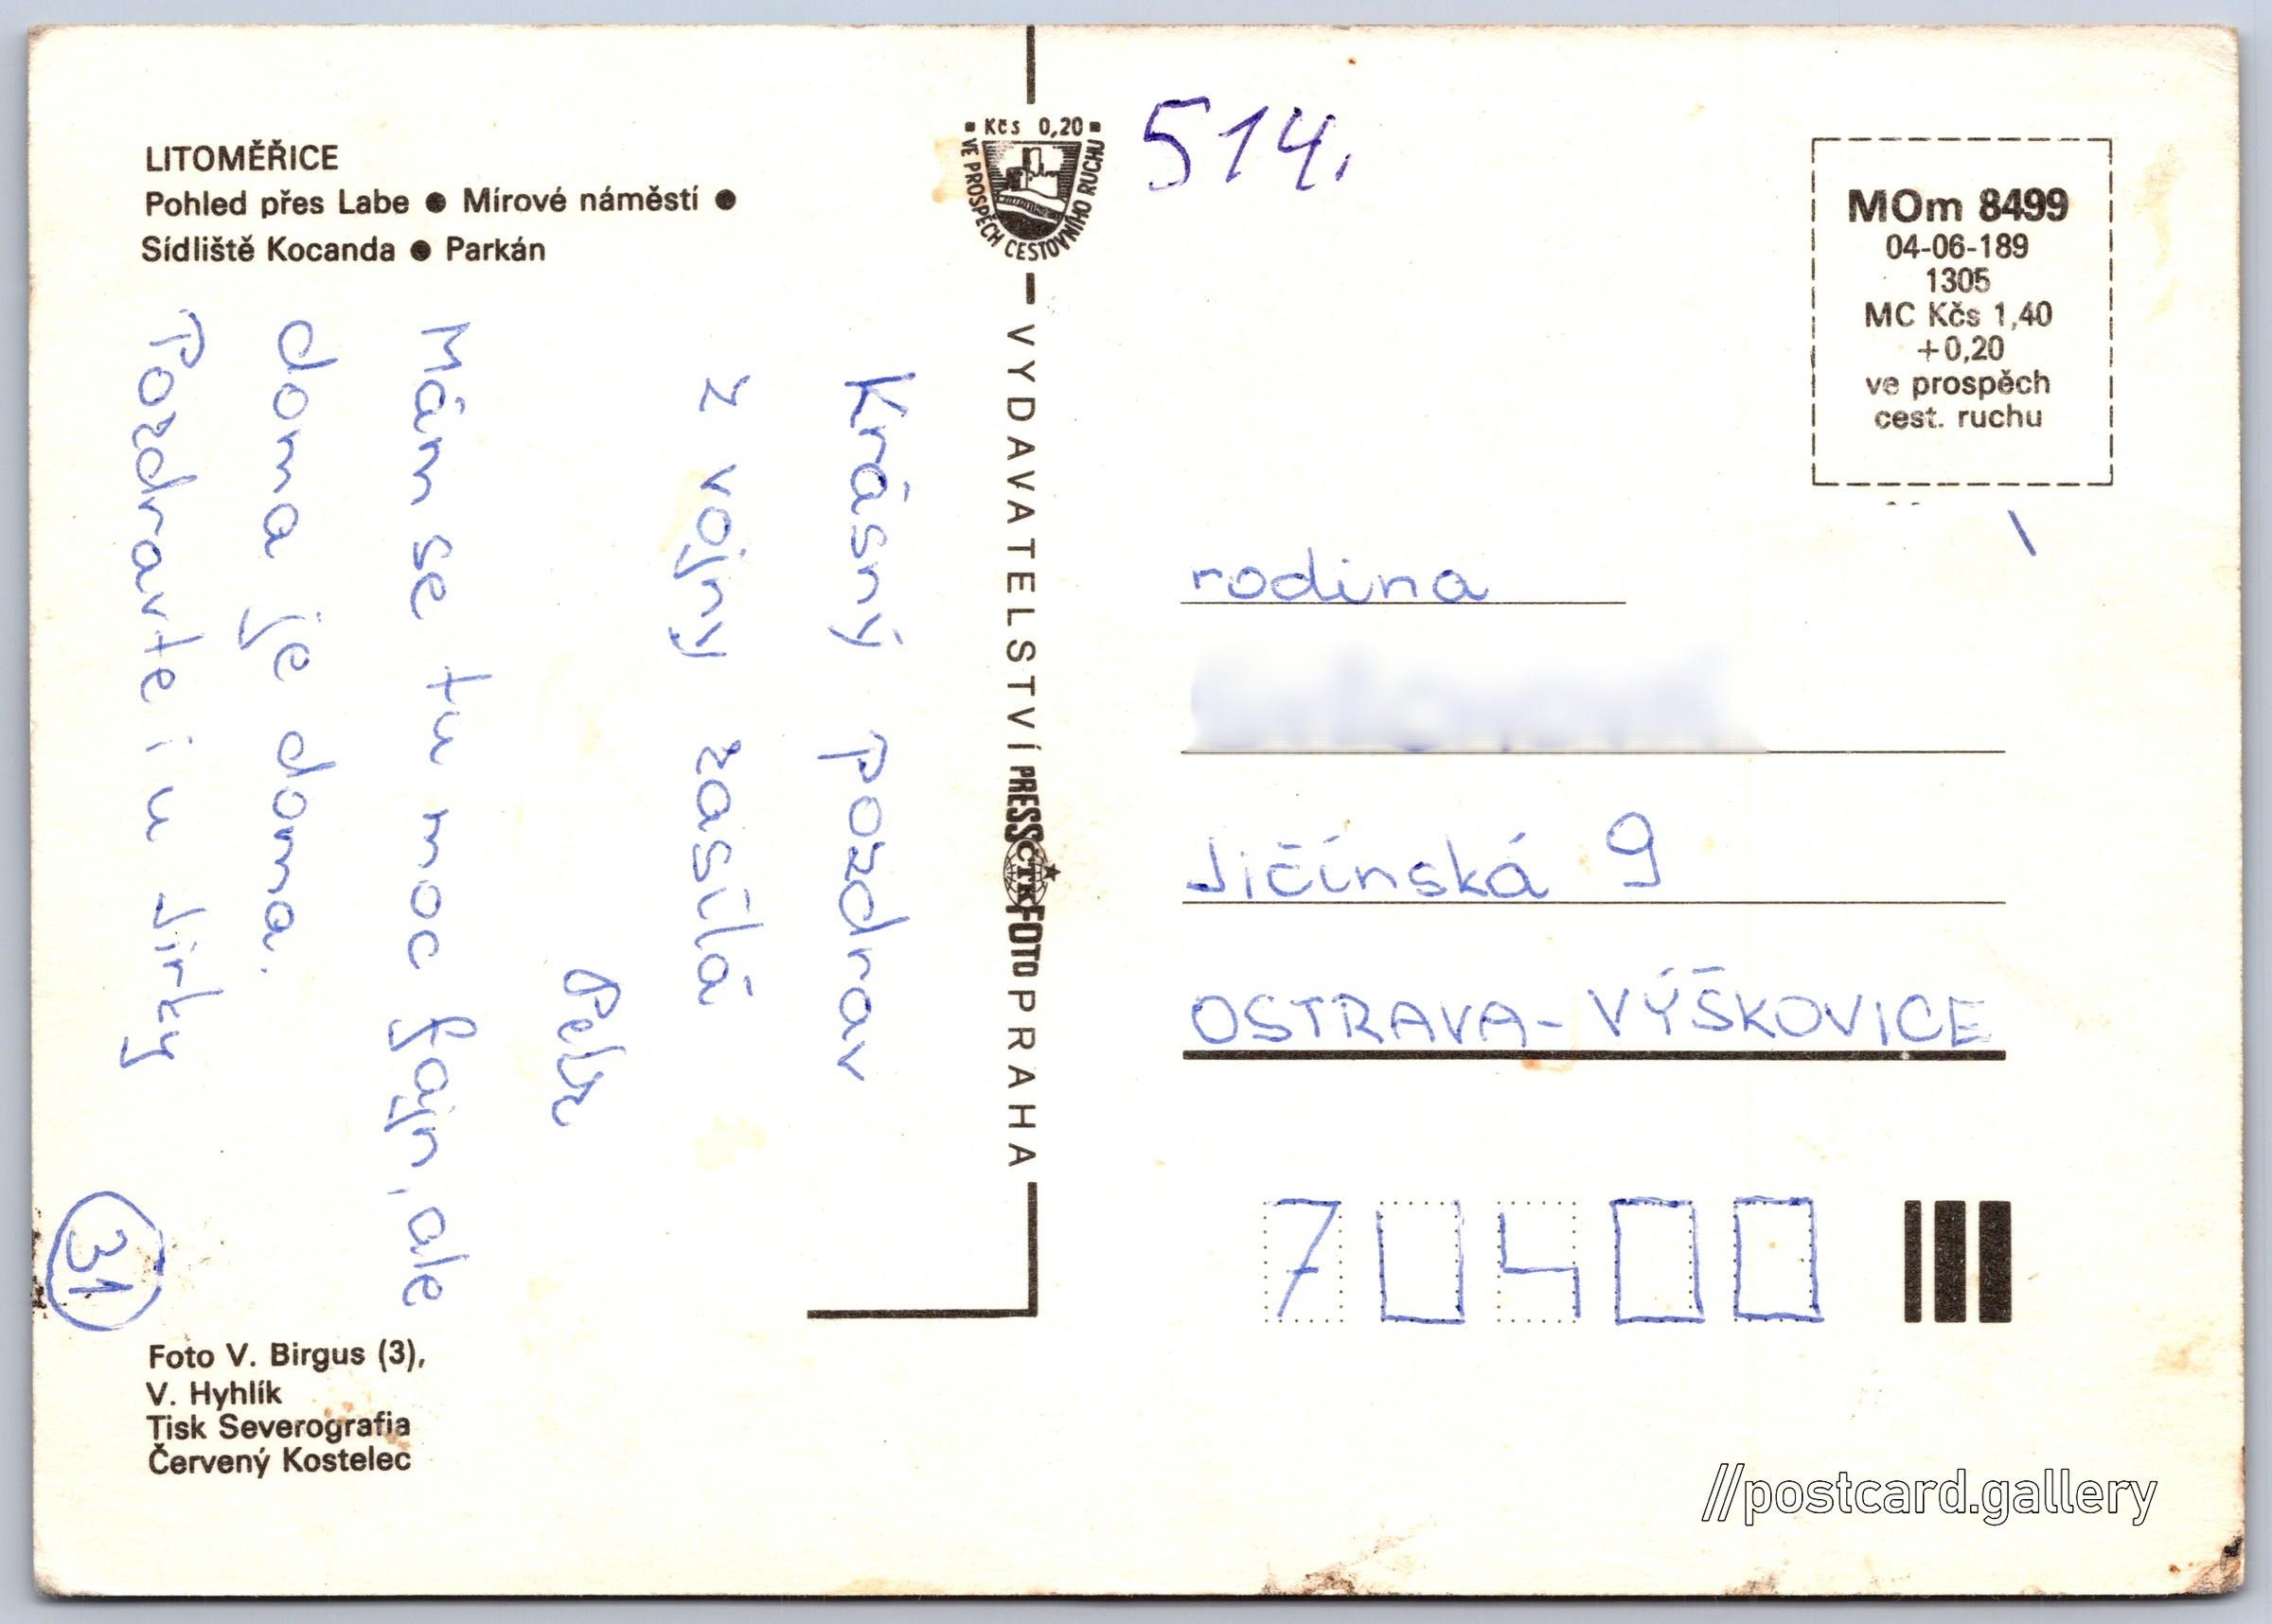 LITOMĚŘICE
Pohled přes Labe ● Mírové náměstí ●
Sídliště Kocanda ● Parkán
Krásný pozdrav
z vojny zasílá
Petr
Mám se tu moc fajn, ale
doma je doma.
Pozdravte i u Jirky
31
Foto V. Birgus (3),
V. Hyhlík
Tisk Severografia
Červený Kostelec
Kčs 0,20
VE PROSPĚCH CESTOVNÍHO RUCHU
VYDAVATELSTVÍ PRESSFOTO PRAHA
ČTK
514.
MOm 8499
04-06-189
1305
MC Kčs 1,40
+0,20
ve prospěch
cest. ruchu
rodina
Jičínská 9
OSTRAVA-VÝŠKOVICE
70400
//postcard.gallery